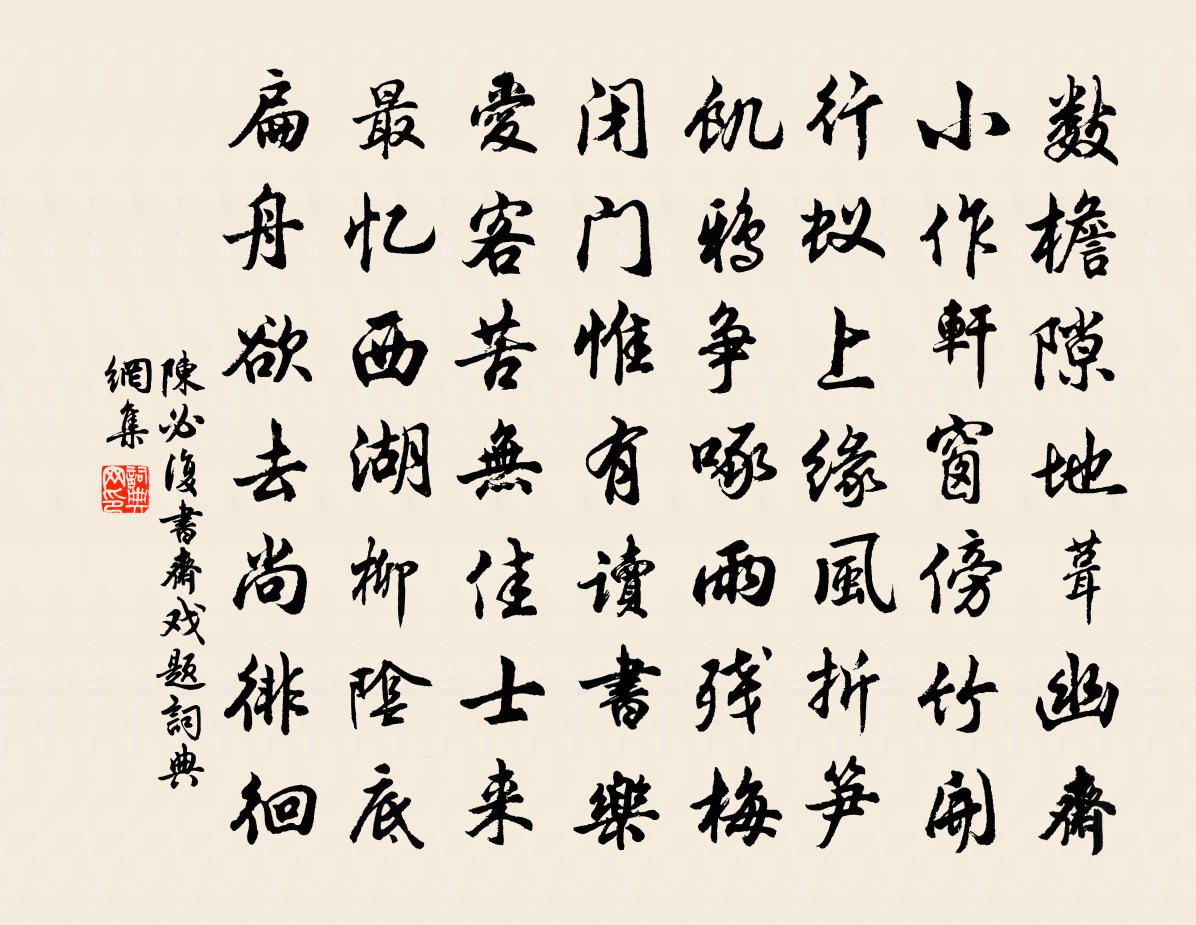 數檐隙地葺幽齋
小作軒窗傍竹開
行蚁上緣風折笋
飢鴉争啄雨残梅
闭门惟有讀書樂
愛客苦無佳士来
最忆西湖柳陰底
扁舟欲去尚徘徊
陳必復書齋戏題詞典
網集
詞典
网印